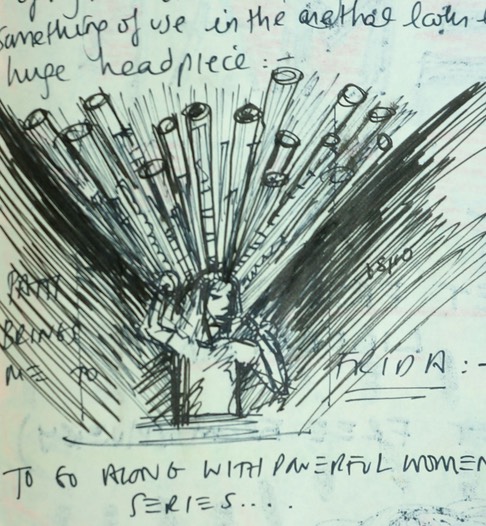 something of use in the
huge headpiece :-
PATTI
BRINGS
ME TO
FRIDA :-
TO GO ALONG WITH POWERFUL WOMEN
SERIES....